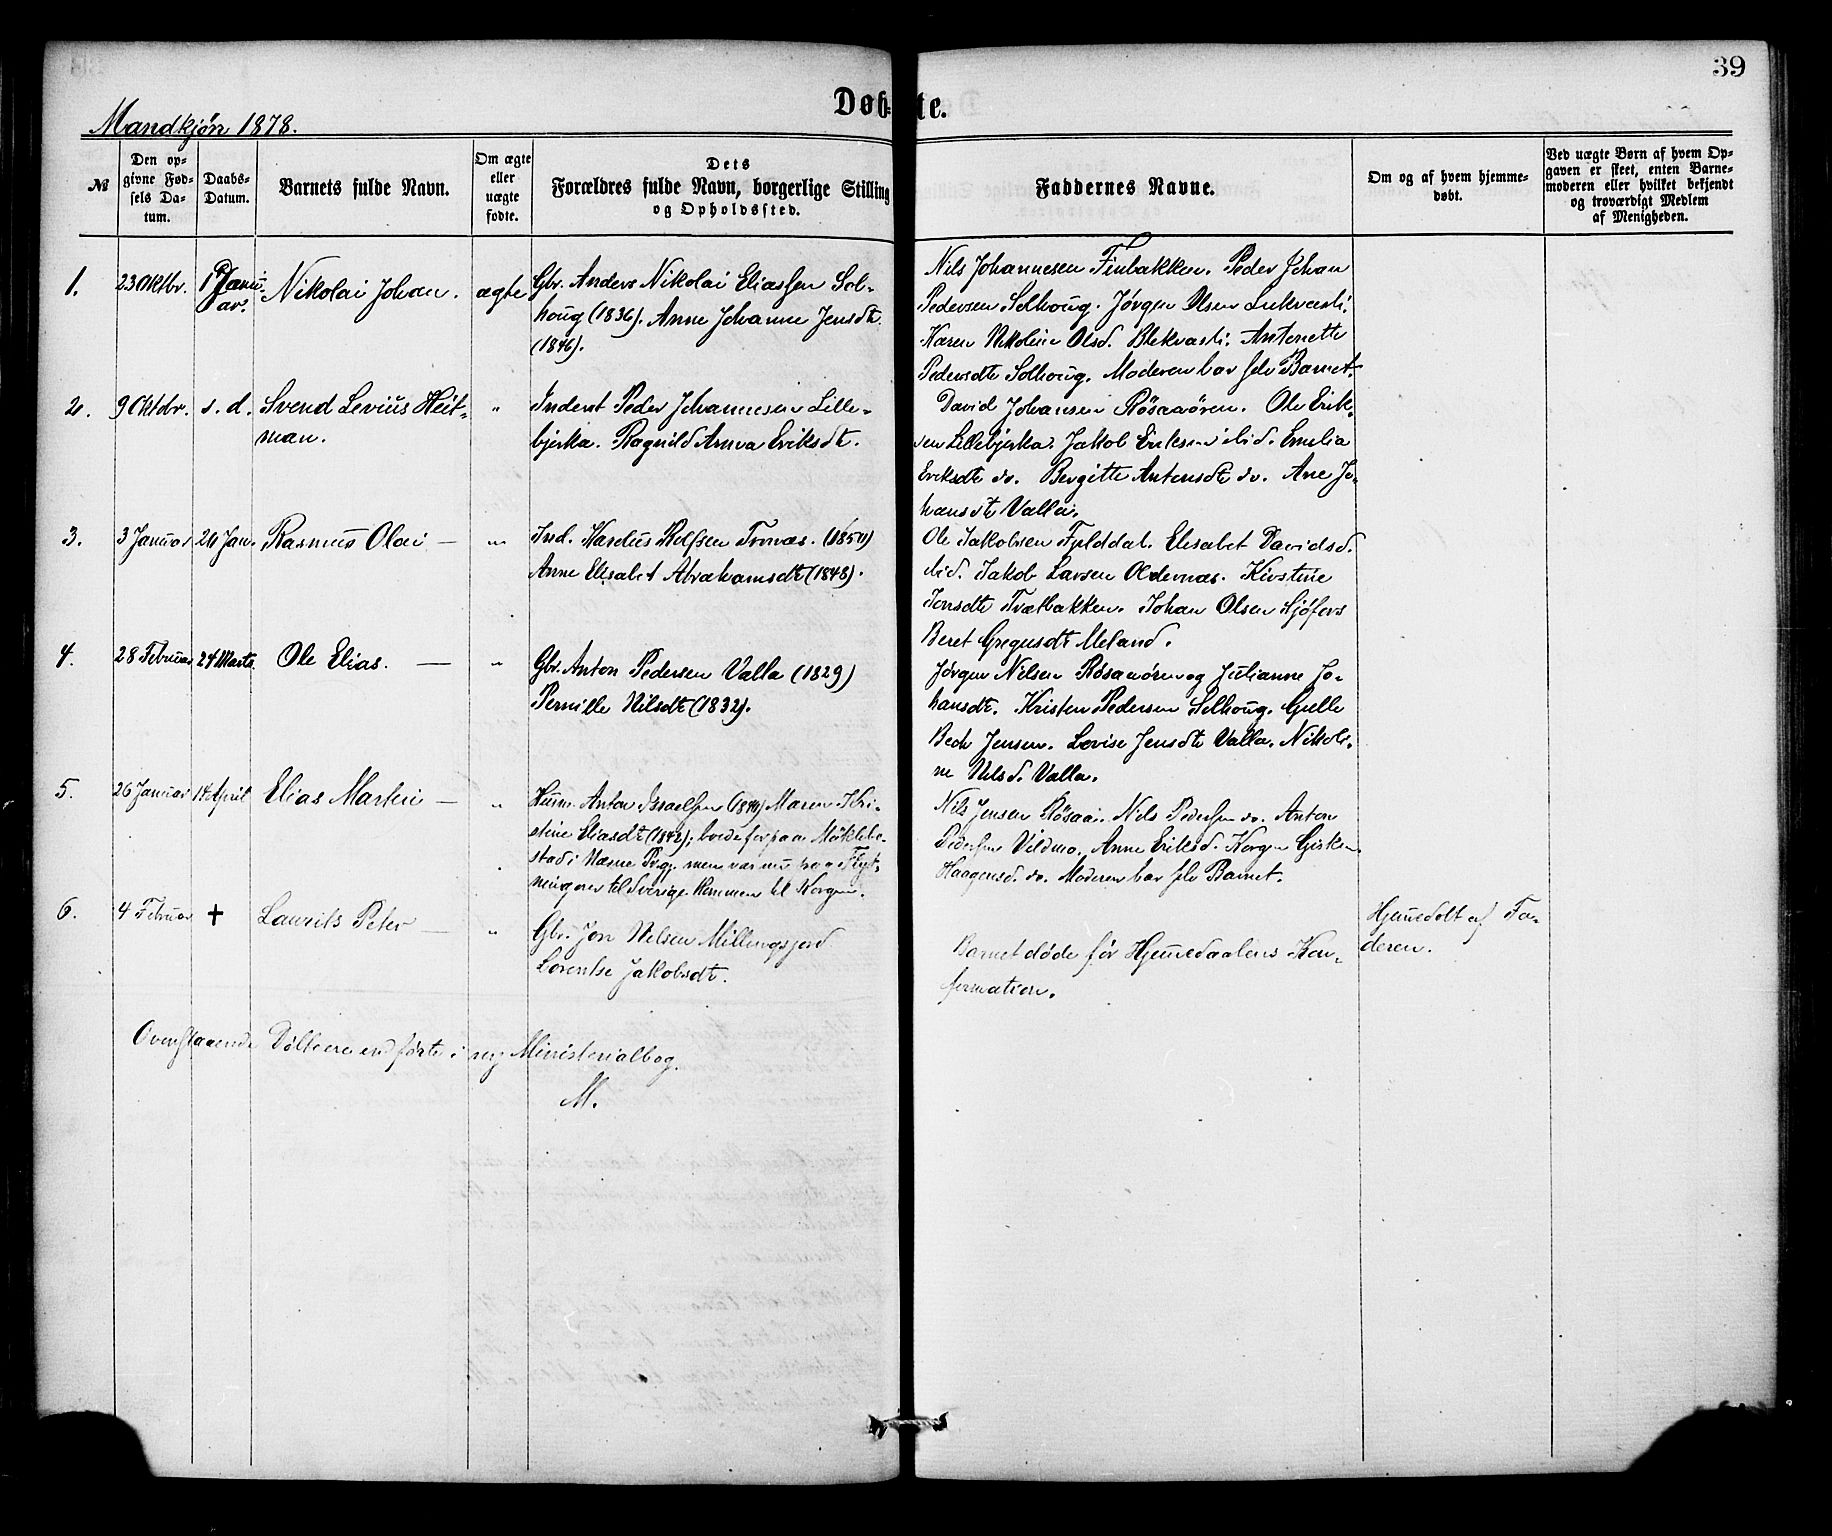 39
Døbte.
Mandkjøn 1878.
№
Den op-
givne Fød-
sels Da-
tum.
Daabs-
Datum.
Barnets fulde Navn.
Om ægte
eller
uægte
fødte.
Dets
Forældres fulde Navn, borgerlige Stilling
og Opholdssted.
Faddernes Navne.
Om og af hvem hjemme-
døbt.
Ved uægte Børn af hvem Op-
gaven er skeet, enten Barne-
moderen eller hvilket bekjendt
og troværdigt Medlem
af Menigheden.
1.
23 Oktbr.
1 Janu-
ar.
Nikolai Johan.
ægte
Gbr. Anders Nikolai Eliassen Sol-
houg (1836). Anne Johanne Jensdt.
(1846).
Nils Johannesen Finbakken. Peder Johan
Pedersen Solhoug. Jørgen Olsen
Karen Nikoline Olsd. Antonette
Pedersdt Solhoug. Moderen bar selv Barnet.
2.
9 Oktbr.
s. d.
Svend Levius Heit-
man.
"
Inderst Peder Johannesen Lille-
bjerka. Ragnild Anna Eriksdt.
David Johansen Røsaaøren. Ole Erik-
sen Lillebjerka. Jakob Eriksen ibid. Emelia
Eriksdt do. Bergitte Antonsdt do. Ane Jo-
hansdt Valla.
3.
3 Januar
20 Jan.
Rasmus Olai —
"
Ind. Rolfsen (1850)
Anne Elisabet Abrahamsdt (1848).
Ole Jakobsen Fjelddal. Elisabet Davidsd.
ibid. Jakob Larsen Oldernæs. Kirstine
Jonsdt Tverbakken. Johan Olsen Sjøfors
Beret Gregusdt Meland.
4.
28 Februar
24 Marts.
Ole Elias. —
"
Gbr. Anton Pedersen Valla (1829)
Pernille Nilsdt (1832).
Jørgen Nilsen Røsaaøren og Julianne Jo-
hansdt. Kristen Pedersen Solhoug.
Jensen. Lovise Jensdt Valla. Nikoli-
ne Nilsd. Valla.
5.
26 Januar
14 April
Elias Martin —
"
Husm. Anton Israelsen (1840) Maren Kri-
stine Eliasdt (1842); boede før paa
stad i Næsne Prgj. men var nu paa Flyt-
ning over til Sverige kommen til Korgen.
Nils Jensen Røsaa. Nils Pedersen do. Anton
Pedersen Vildmo. Anne Eriksd. Korgen Gisken
Haagensd. do. Moderen bar selv Barnet.
6.
4 Februar
✝
Laurits Peter —
"
Gbr. Jon Nilsen Millingsjord
Lorentse Jakobsdt.
Barnet døde før Hjemmedaabens Kon-
firmation.
Hjemmedøbt af Fa-
deren.
Ovenstaaende Døbte ere indførte i ny Ministerialbog.
M.